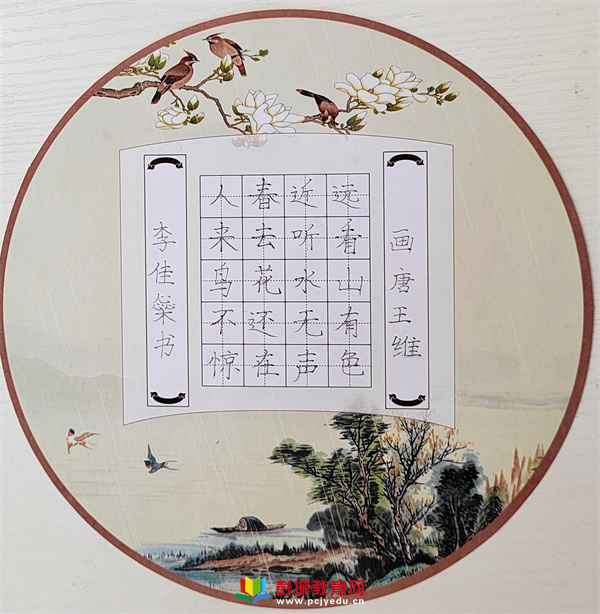 画唐王维
远看山有色
近听水无声
春去花还在
人来鸟不惊
李佳书
彭城教育网
www.pcjyedu.cn